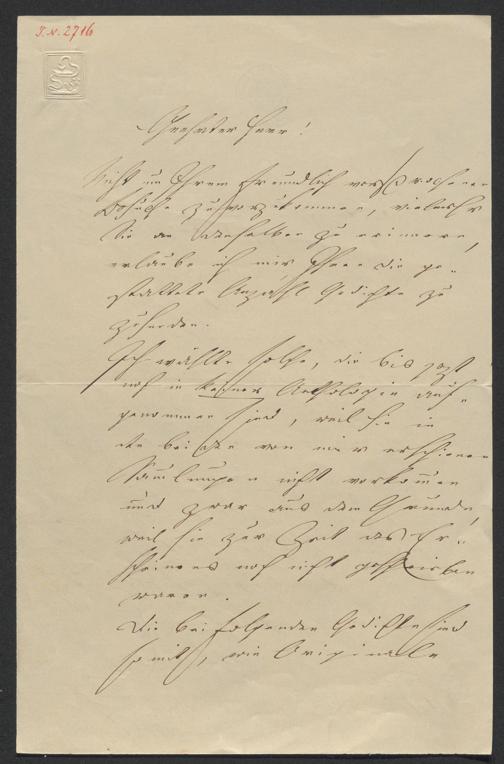 I.N. 2716
Geehrter Herr!
Nicht um Ihrem freundlich versprochenen
Besuche zuvorzukommen, vielmehr
Sie an denselben zu erinnern,
erlaube ich mir Ihnen die ge-
stattete Anzahl Gedichte zu
zusenden.
Ich wählte solche, die bis jetzt
noch in keiner Anthologie auf-
genommen sind, weil sie in
den beiden von mir erschienenen
Sammlungen nicht vorkommen
und zwar aus dem Grunde,
weil sie zur Zeit des Er-
scheinens noch nicht geschrieben
waren.
Die beifolgenden Gedichte sind
somit, wie Originale